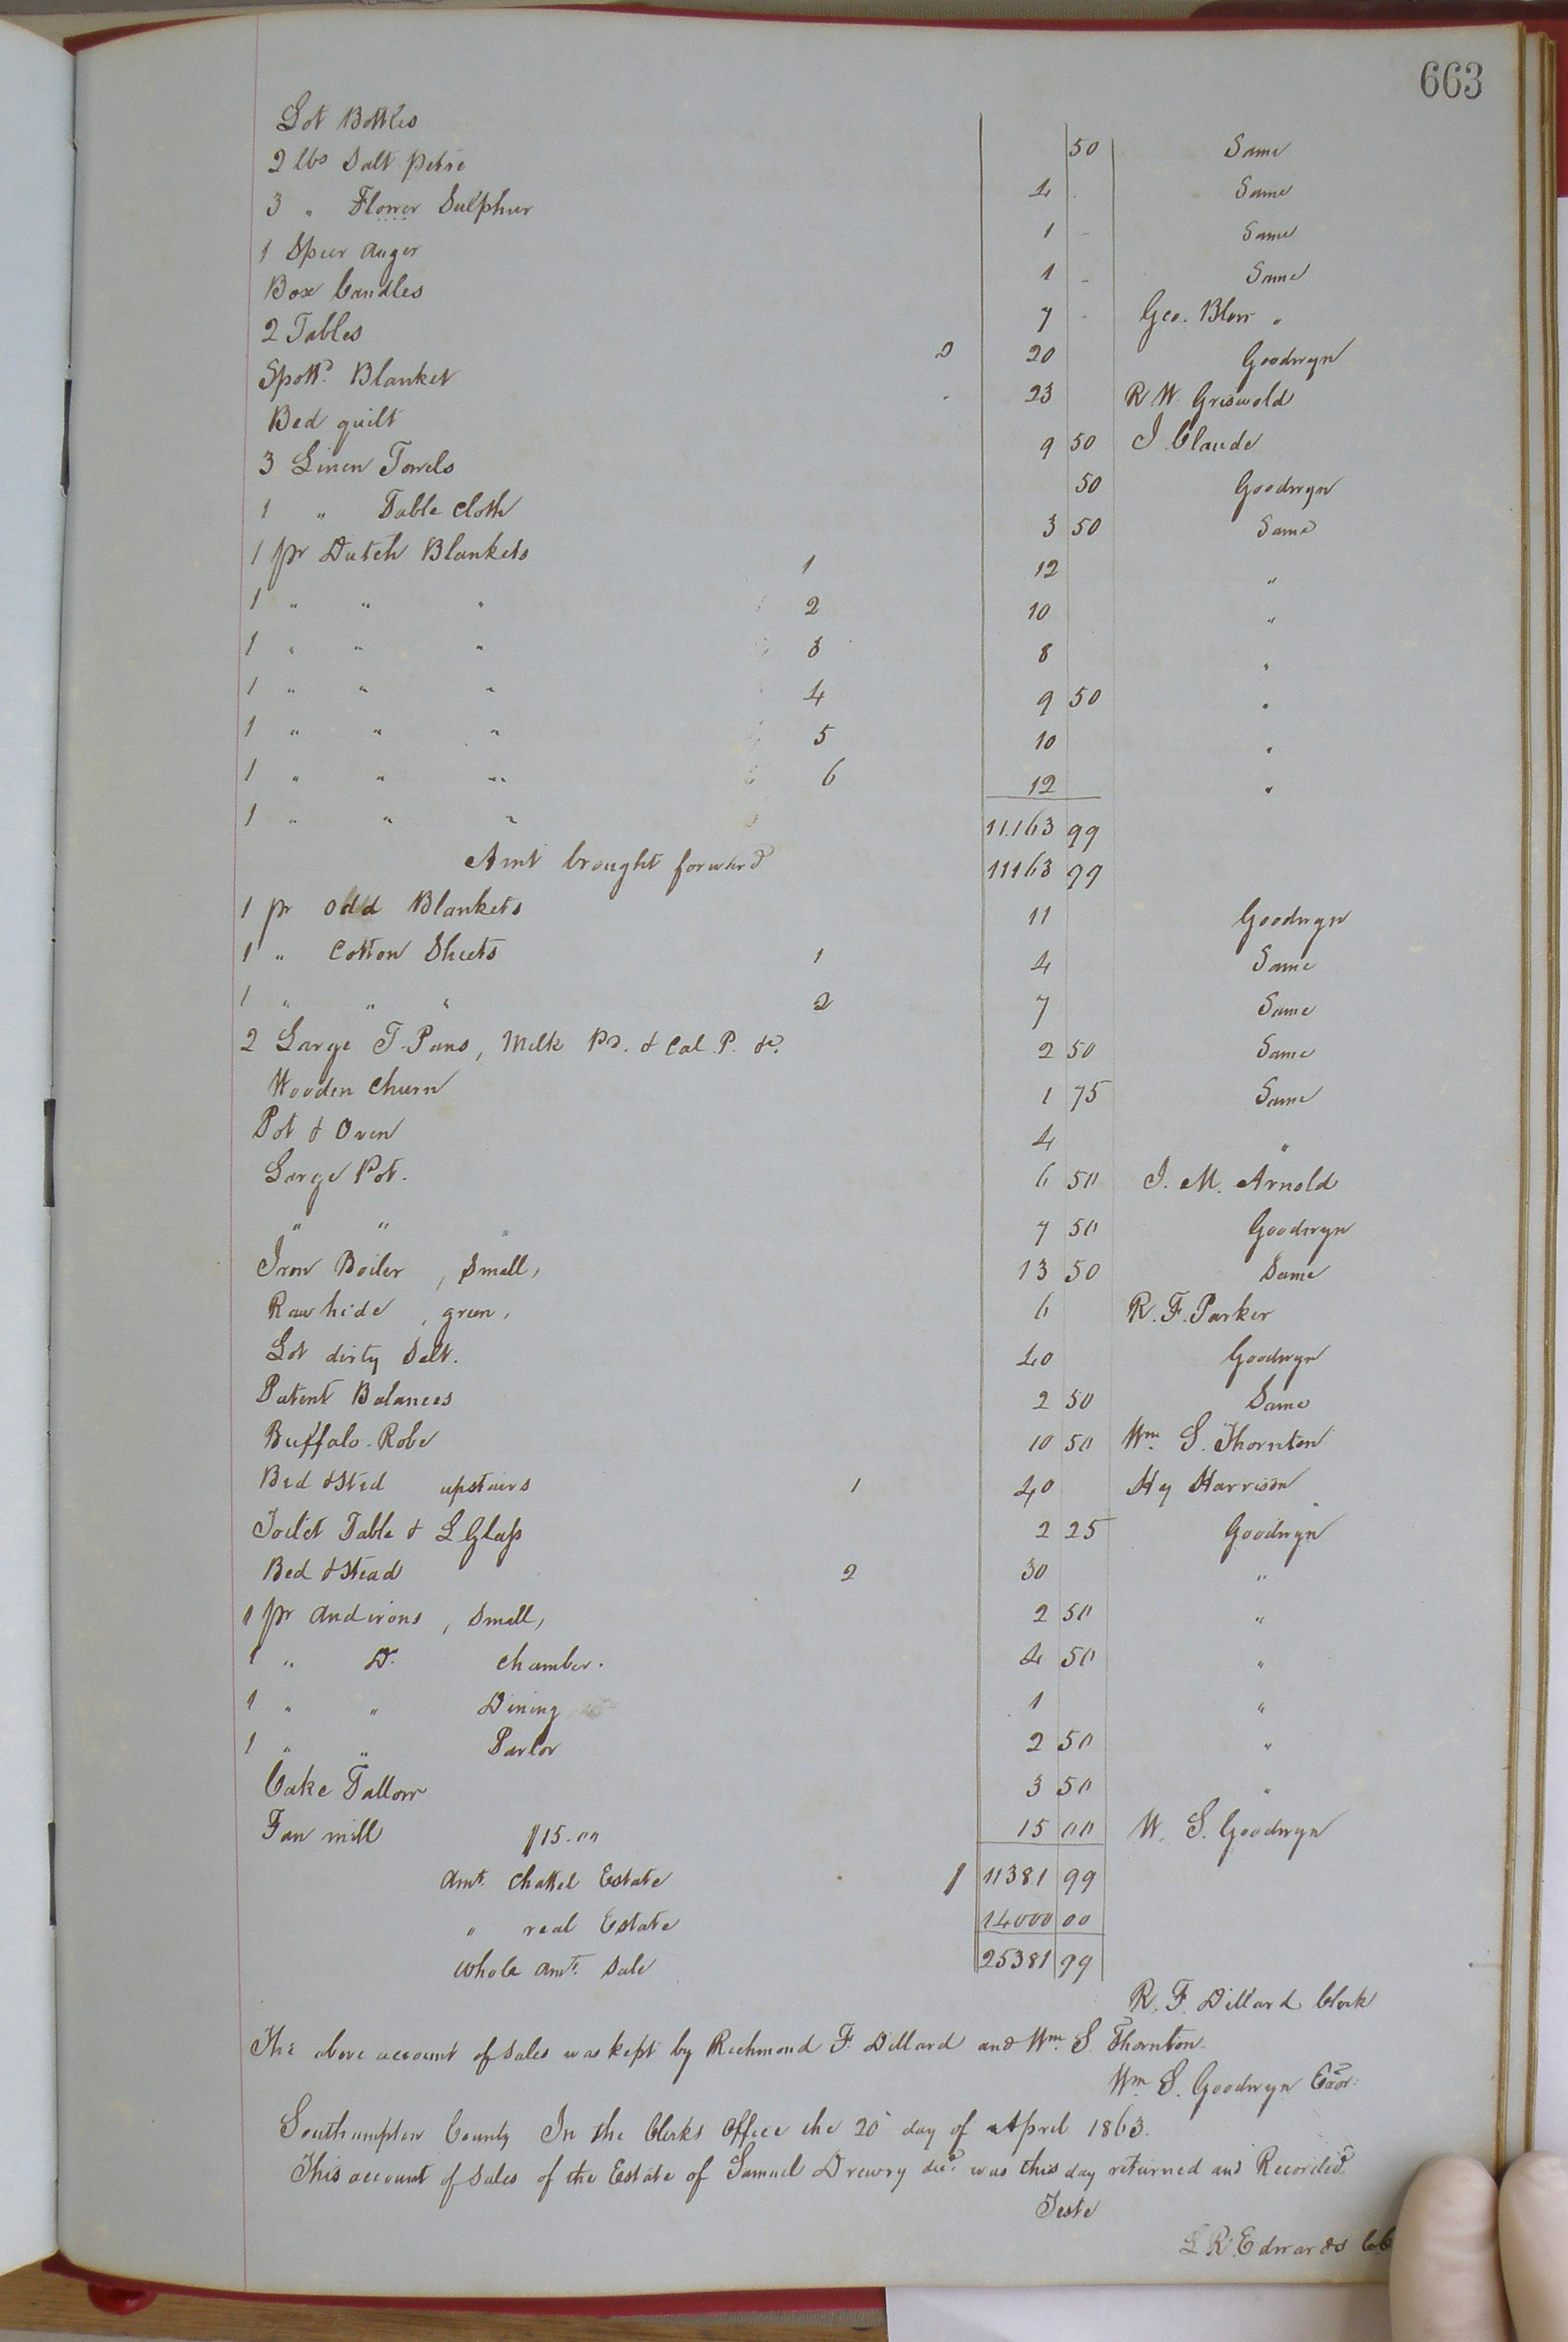 663
Lot Bottles 50 Same
2 lbs Salt petre 4 Same
3 " Flower Sulphur 1 - Same
1 Spier auger 1 - Same
Box Candles 7 - Geo. Blow "
2 Tables 20 Goodwyn
Spottd. Blanket 23 R. W. Griswold
Bed quilt 9 50 J. Claude
3 Linen Towels 50 Goodwyn
1 " Table cloth 3 50 Same
1 pr Dutch Blankets 1 12 "
1 " " " 2 10 "
1 " " " 3 8 "
1 " " " 4 9 50 "
1 " " " 5 10 "
1 " " " 6 12 "
1 " " " 11.163 99
Amt brought forward 11163 99
1 pr odd Blankets 11 Goodwyn
1 " Cotton Sheets 1 4 Same
1 " " " 2 7 Same
2 Large T. Pans, Milk Pd. & Cal. P. &c. 2 50 Same
Wooden Churn 1 75 Same
Pot & Oven 4 "
Large Pot. 6 50 J. M. Arnold
" " 7 50 Goodwyn
Iron Boiler, small, 13 50 Same
Rawhide, green, 6 R. F. Parker
Lot dirty Salt. 40 Goodwyn
Patent Balances 2 50 Same
Buffalo Robe 10 50 Wm. S. Thornton
Bed &Sted upstairs 1 40 Hy Harrison
Toilet Table & L Glass 2 25 Goodwyn
Bed &Stead 2 30 "
1 pr andirons, small, 2 50 "
1 " Do. chamber. 4 50 "
1 " " Dining 1 "
1 " " Parlor 2 50 "
Cake Tallow 3 50 "
Fan mill $15.00 15 00 W. S. Goodwyn
Amt. Chattel Estate $ 11381 99
" real Estate 14000 00
Whole amt. Sale 25381 99
R. F. Dillard Clerk
The above account of sales was kept by Richmond F. Dillard and Wm. S. Thornton.
Wm S. Goodwyn Exor:
Southampton County In the Clerks Office the 20 day of April 1863.
This account of Sales of the Estate of Samuel Drewry decd. was this day returned and Recorded
Teste
L R. Edwards CC